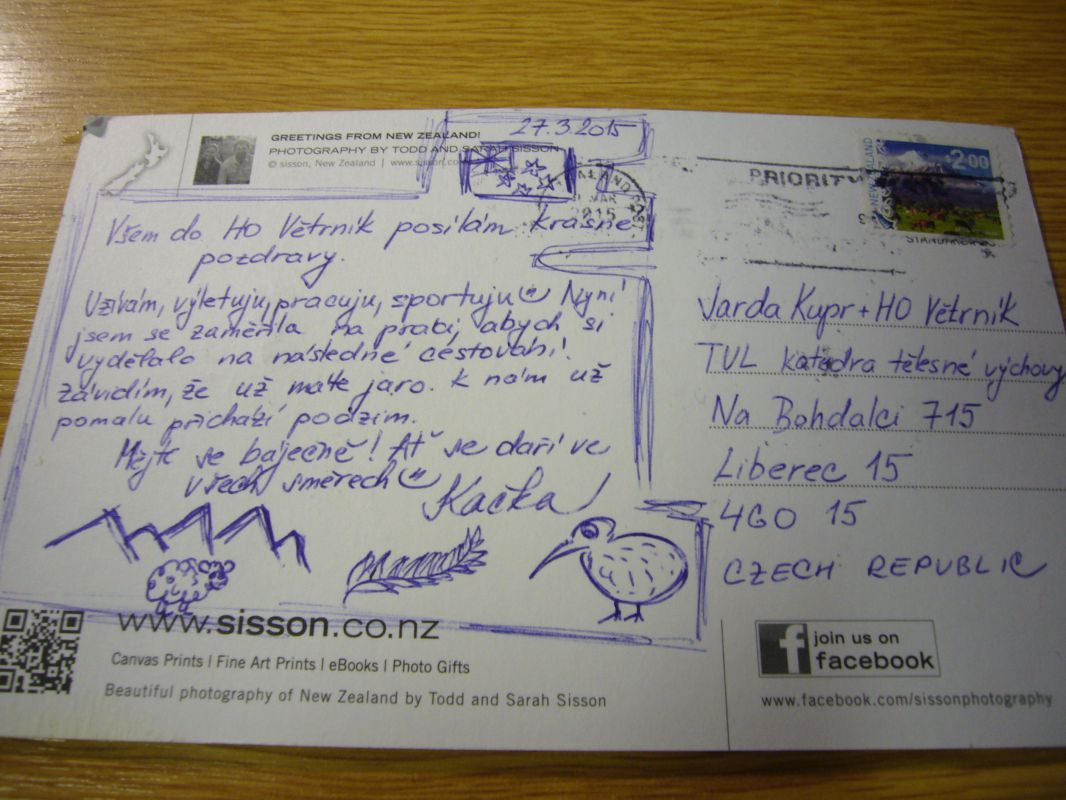 GREETINGS FROM NEW ZEALAND!
PHOTOGRAPHY BY TODD AND SARAH SISSON
© sisson, New Zealand | www.sisson.co
27.3.2015
Všem do HO Větrník posílám krásné
pozdravy.
Užívám, výletuju, pracuju, sportuju Nyní
jsem se zaměřila na práci, abych si
vydělala na následné cestování.
Závidím, že už máte jaro. K nám už
pomalu přichází podzim.
Mějte se báječně! Ať se daří ve
všech směrech
Kačka
www.sisson.co.nz
Canvas Prints | Fine Art Prints | eBooks | Photo Gifts
Beautiful photography of New Zealand by Todd and Sarah Sisson
PRIORITY
MAR
2015
NEW ZEALAND
$2.00
Jarda Kupr + HO Větrník
TUL katedra tělesné výchovy
Na Bohdalci 715
Liberec 15
460 15
CZECH REPUBLIC
f join us on
facebook
www.facebook.com/sissonphotography